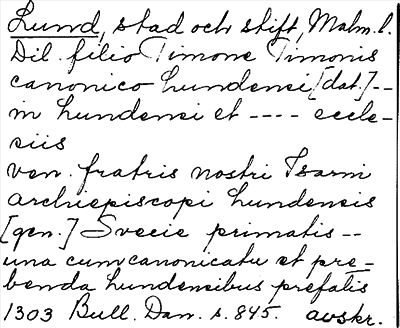 Lund, stad och stift, Malm. l.
Dil. filio Timone Timonis
canonico Lundensi [dat.] --
in Lundensi et ---- eccle-
siis
ven. fratris nostri Isarni
archiepiscopi Lundensis
[gen.] Svecie primatis --
una cum canonicatu et pre-
benda Lundensibus prefatis
1303 Bull. Dan. s. 845. avskr.